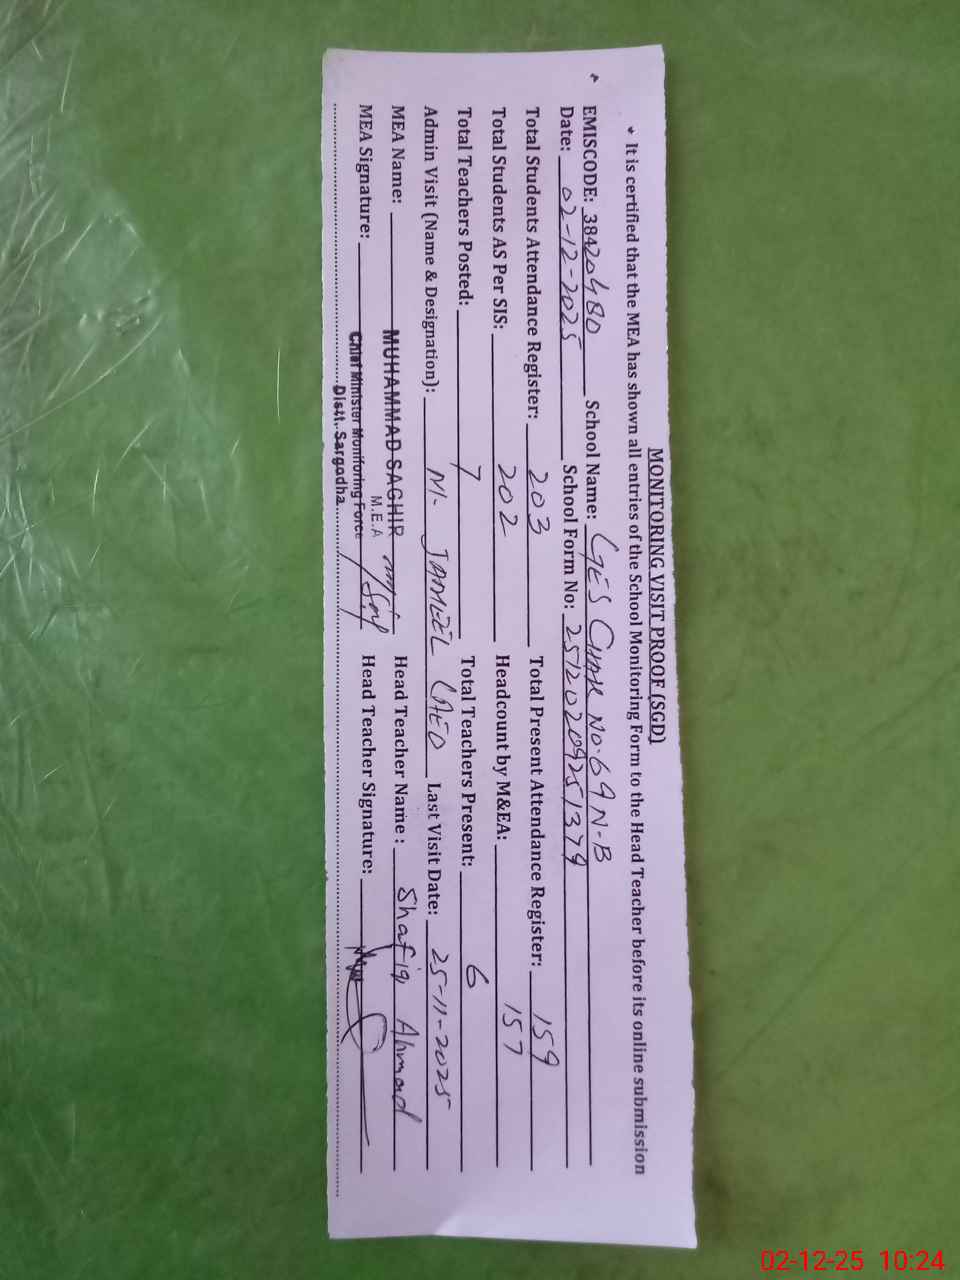 MONITORING VISIT PROOF (SGD)
* It is certified that the MEA has shown all entries of the School Monitoring Form to the Head Teacher before its online submission
EMISCODE: 38420480 School Name: GES CHAK NO. 64 N-B
Date: 02-12-2025 School Form No: 25120209251379
Total Students Attendance Register: 203 Total Present Attendance Register: 159
Total Students AS Per SIS: 202 Headcount by M&EA: 157
Total Teachers Posted: 7 Total Teachers Present: 6
Admin Visit (Name & Designation): M. JAMEEL (AEO Last Visit Date: 25-11-2025
MEA Name: MUHAMMAD SAGHIR Head Teacher Name : Shafiq Ahmad
M.E.A
MEA Signature: Chief Minister Monitoring Force Head Teacher Signature:
Distt. Sargodha
02-12-25 10:24